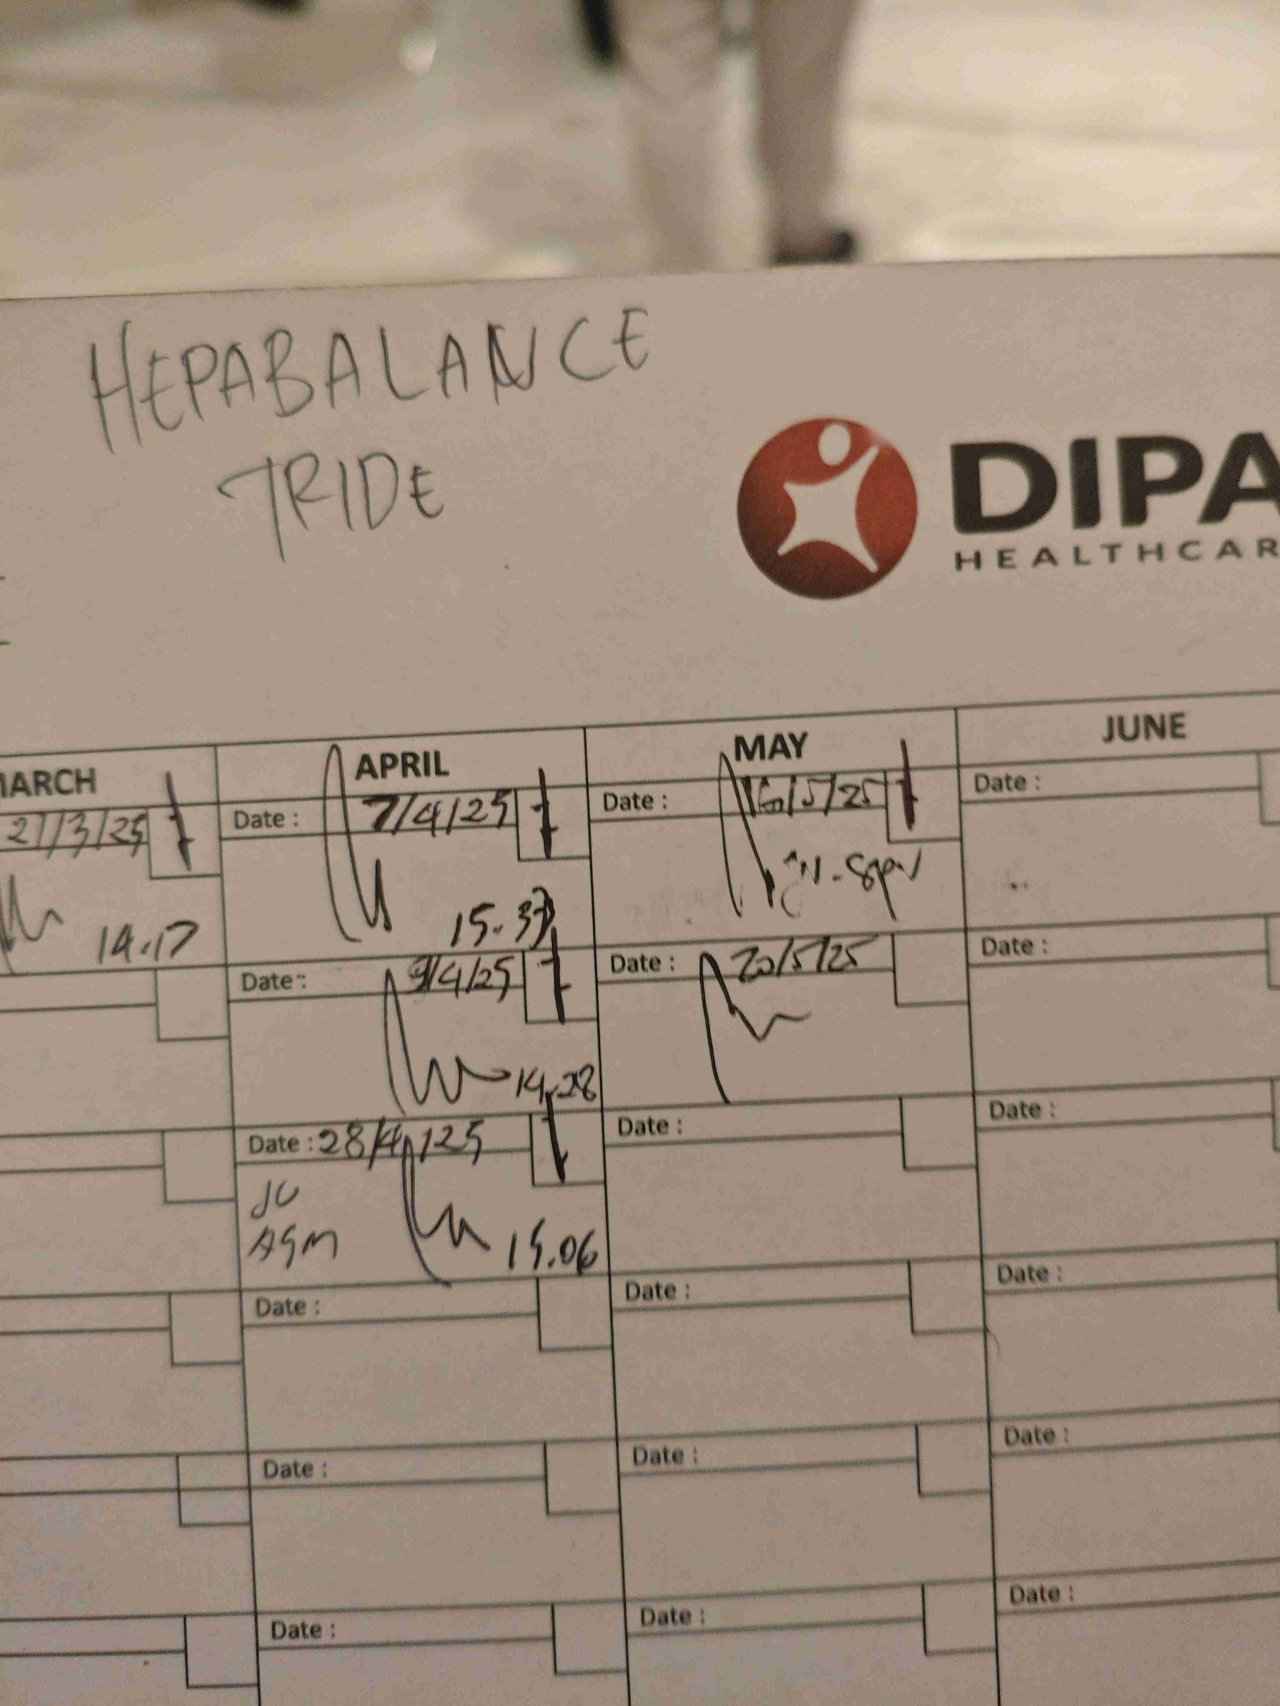 HEPABALANCE
TRIDE
DIPA
HEALTHCAR
MARCH
APRIL
MAY
JUNE
27/3/25
Date : 7/4/25
Date : 16/5/25
Date :
14.17
15.37
Date : 9/4/25
Date : 20/5/25
Date :
14.28
Date : 28/4/25
Date :
Date :
JU
ASM
15.06
Date :
Date :
Date :
Date :
Date :
Date :
Date :
Date :
Date :